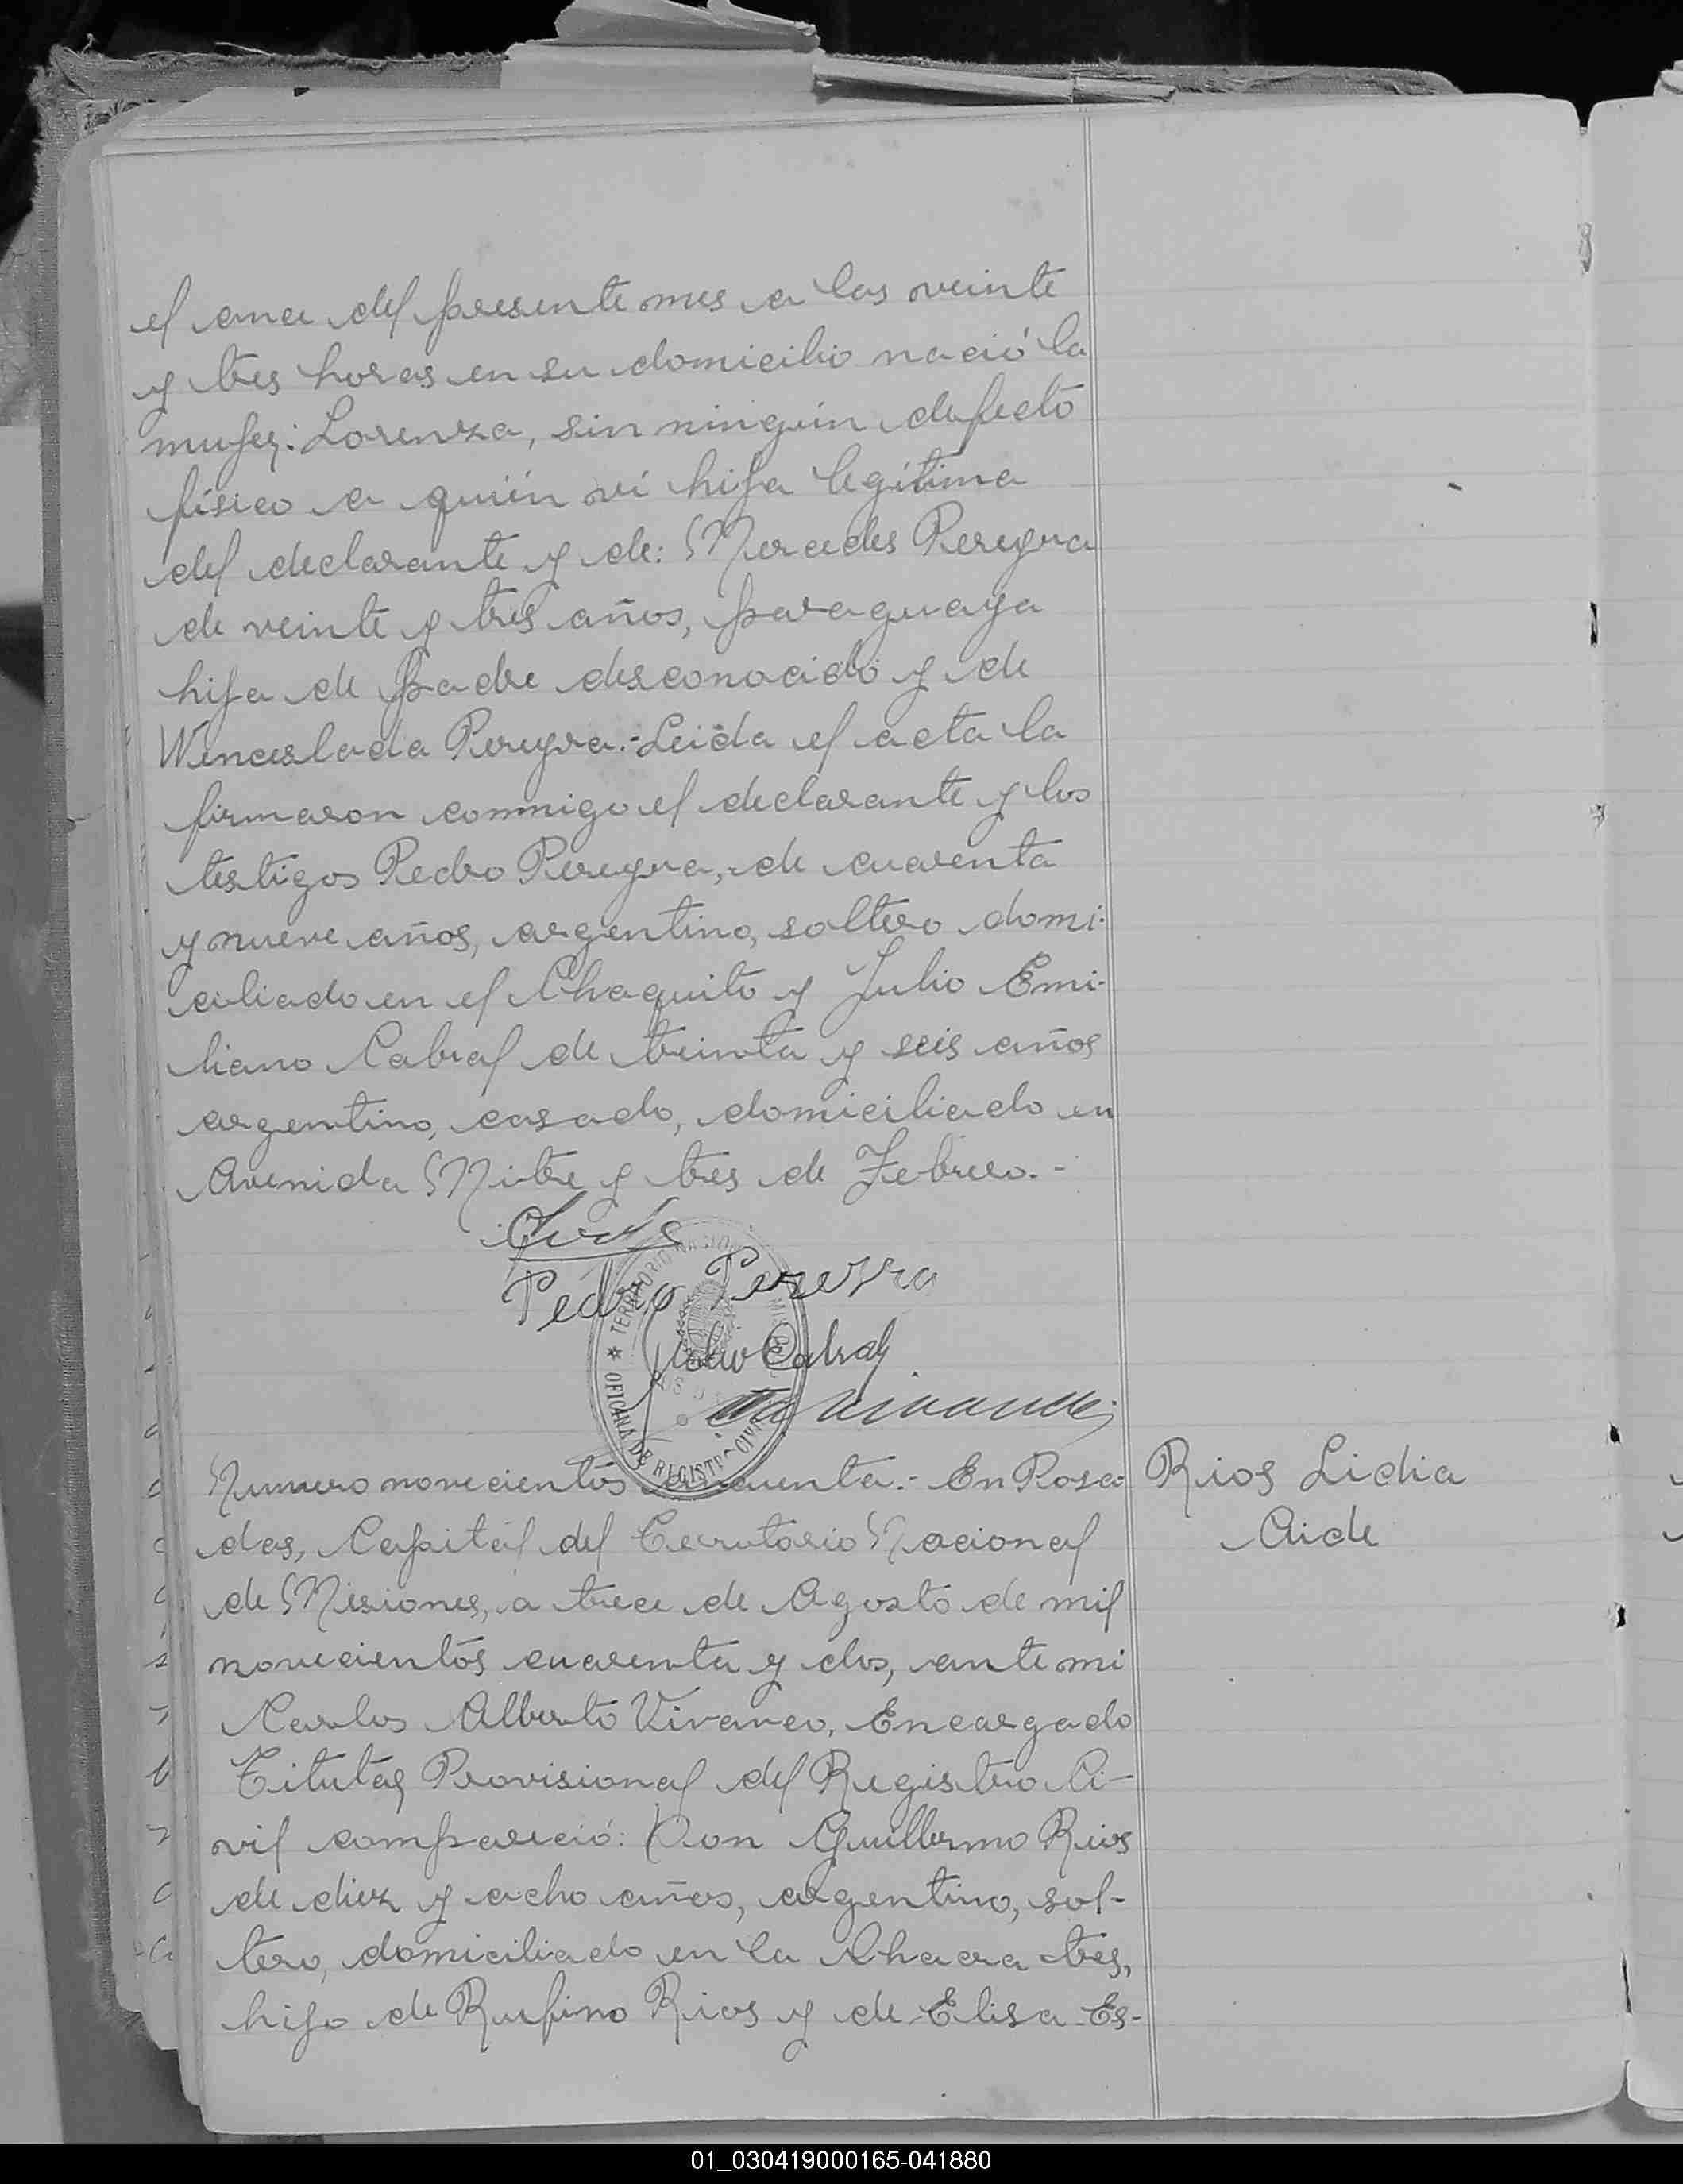 el once del presente mes a las veinte
y tres horas en su domicilio nació la
mujer: Lorenza, sin ningún defecto
físico a quién ví hija legítima
del declarante y de: Mercedes Pereyra
de veinte y tres años, paraguaya
hija de padre desconocido y de
Wenceslada Pereyra.- Leida el acta la
firmaron conmigo el declarante y los
testigos Pedro Pereyra, de cuarenta
y nueve años, argentino, soltero domi-
ciliado en el Chaquito y Julio Emi-
liano Cabral de treinta y seis años
argentino, casado, domiciliado en
Avenida Mitre y tres de Febrero.-
Pedro Pereyra
Julio Cabral
TERRITORIO NACIONAL
OFICINA DE REGISTRO CIVIL
Numero novecientos cincuenta.- En Posa-
das, Capital del Territorio Nacional
de Misiones, a trece de Agosto de mil
novecientos cuarenta y dos, ante mi
Carlos Alberto Vivanco, Encargado
Titular Provisional del Registro Ci-
vil compareció: Don Guillermo Rios
de diez y ocho años, argentino, sol-
tero, domiciliado en la Chacra tres,
hijo de Rufino Rios y de Elisa Es-
Rios Lidia
Aide
01_030419000165-041880